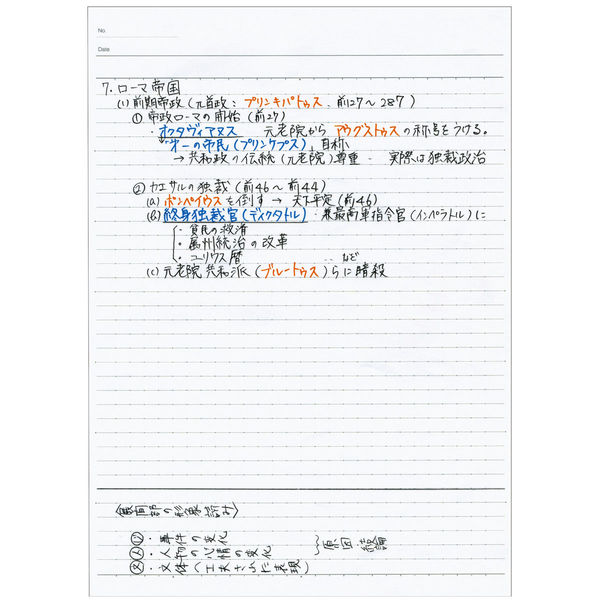 No.
Date
7. ローマ帝国
(1) 前期帝政（元首政：プリンキパトゥス．前27～287）
① 帝政ローマの開始（前27）
・オクタヴィアヌス 元老院から アウグストゥスの称号をうける。
オーの市民（プリンケプス）自称
→ 共和政の伝統（元老院）尊重・実際は独裁政治
② カエサルの独裁（前46～前44）
(a) ポンペイウスを倒す → 天下平定（前46）
(b) 終身独裁官（ディクタトル）・兼最高軍指令官（インペラトル）に
・貧民の救済
・属州統治の改革
・ユリウス暦 など
(c) 元老院共和派（ブルートゥス）らに暗殺
・事件の変化
・人物の心情の変化
・文体（工夫された表現）
原因